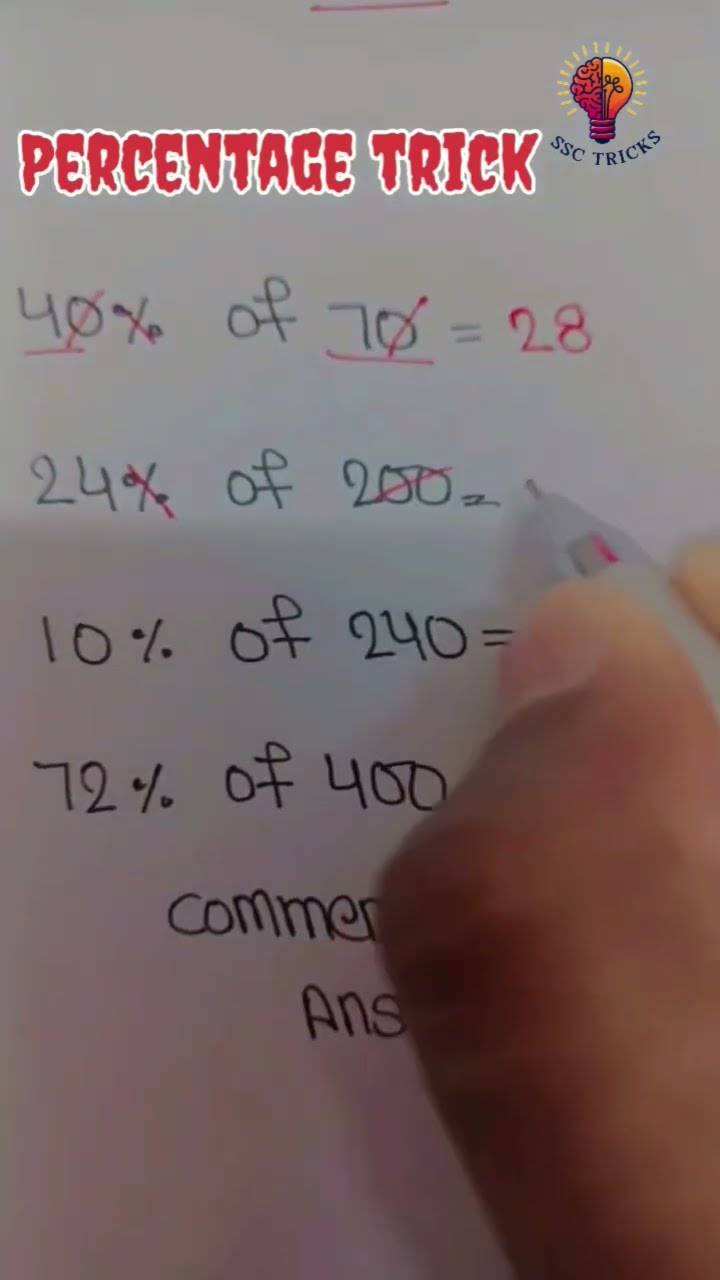 SSC TRICKS
PERCENTAGE TRICK
40% of 70 = 28
24% of 200=
10% of 240=
72% of 400
Commen
Ans